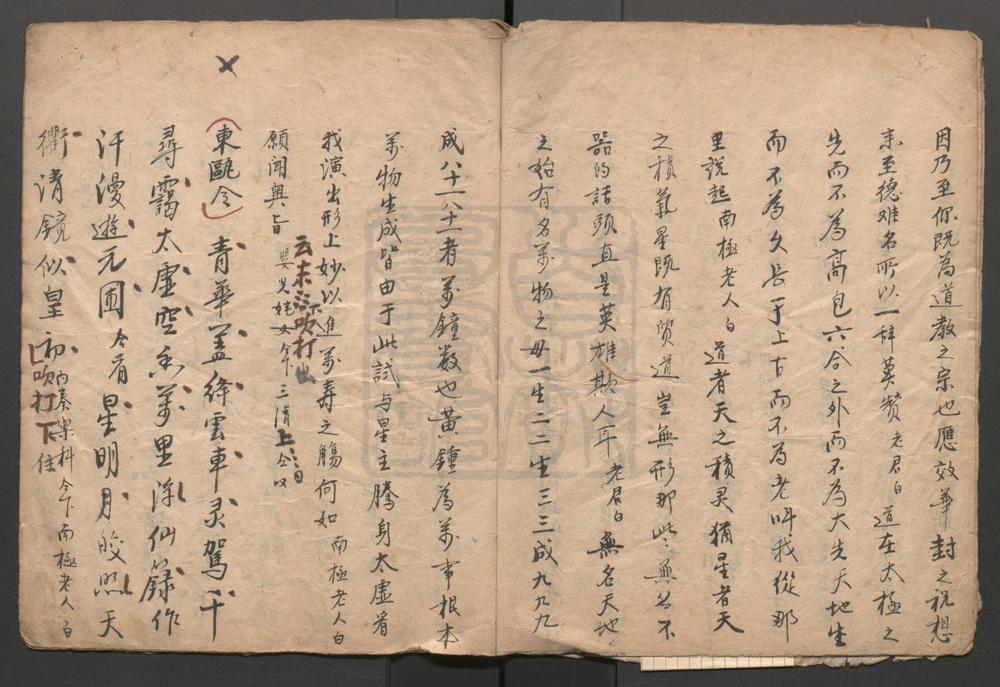 因乃至你既為道教之宗也應效華封之祝想
未至德难名所以一辞莫赞老君白道在太極之
先而不為高包六合之外而不為大先天地生
而不為久長于上古而不為老叫我從那
里說起南極老人白道者天之積灵猶星者天
之積氣星既有質道豈無形那此無名不
器的話頭直是英雄欺人耳老君白無名天地
之始有名萬物之母一生二二生三三成九九九
成八十一八十一者萬鐘数也黃鐘為萬事根本
萬物生成皆由于此試与星主騰身太虛看
我演出形上妙以進萬寿之觴何如南極老人白
願聞奥旨嬰児姹女仝下三清上仝曰
云末吹打出
(東甌令)青華盖絳雲車灵駕千
尋靄太虛空香萬里浮仙籙作
汗漫遊元圃仝看星明月皎照天
衢清鏡似皇初内奏樂科仝下南極老人白
吹打下住